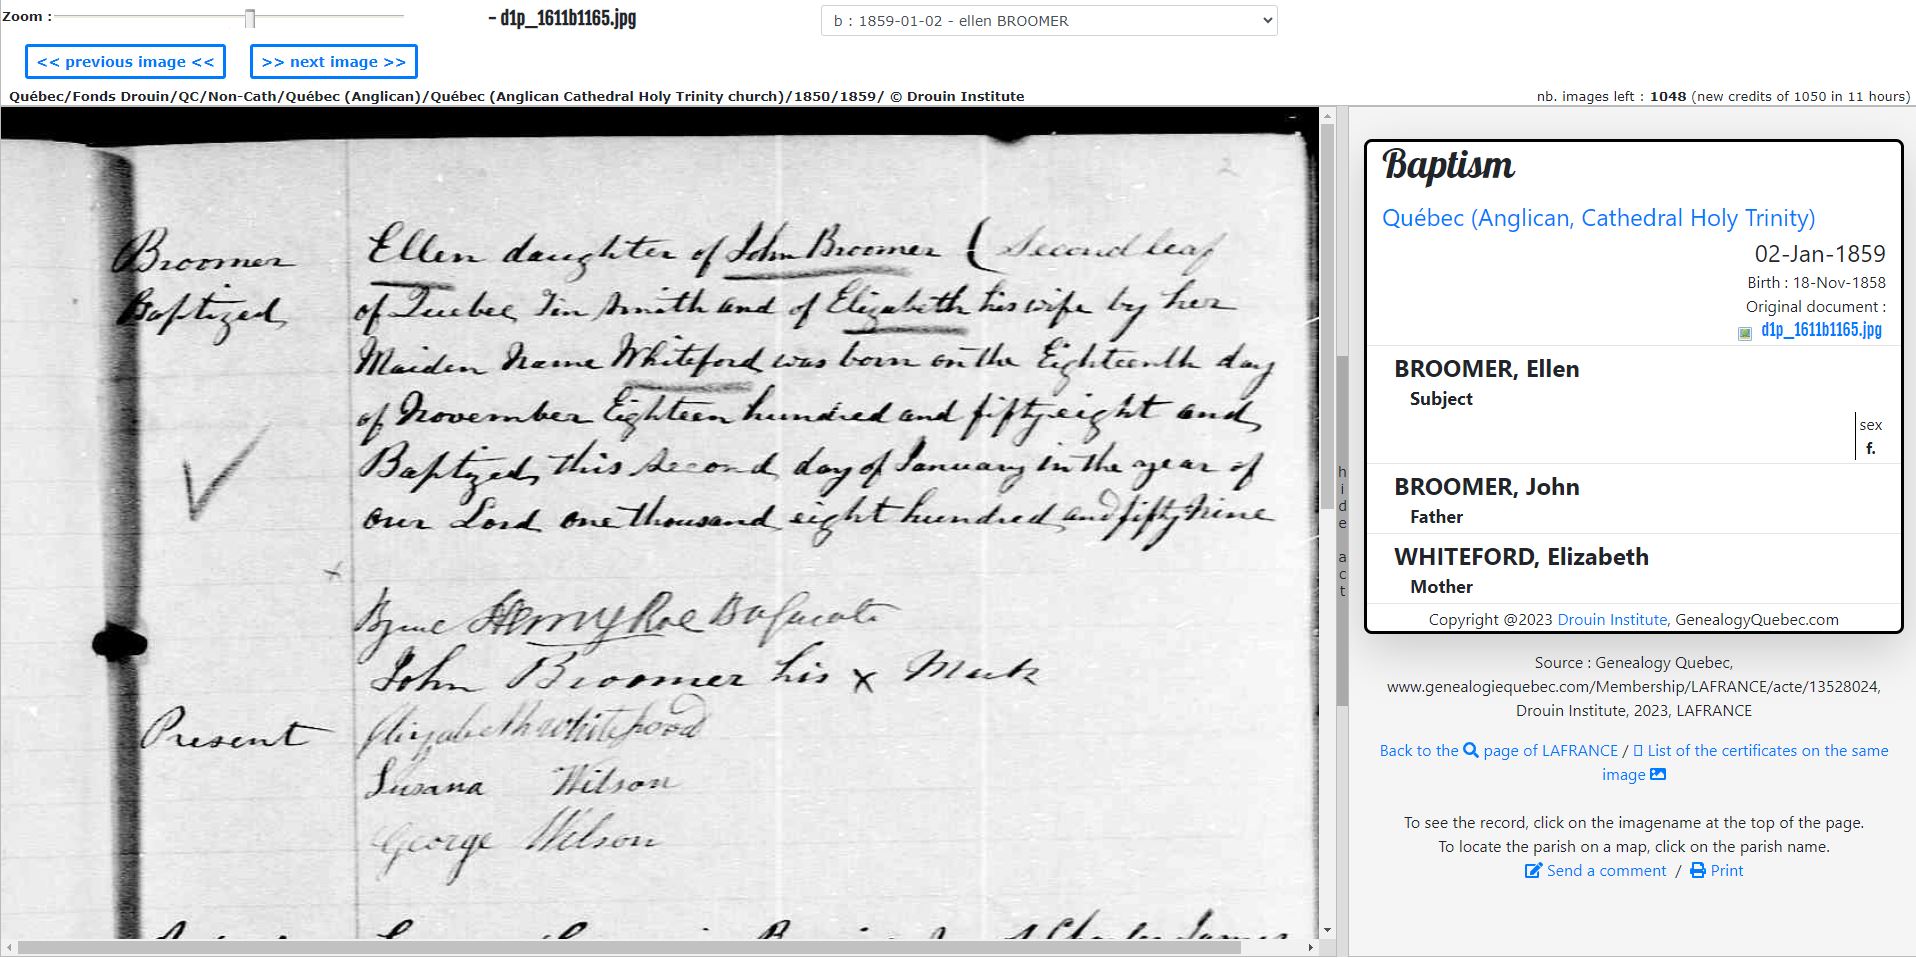 Zoom :
- d1p_1611b1165.jpg
b : 1859-01-02 - ellen BROOMER
<< previous image <<
>> next image >>
Québec/Fonds Drouin/QC/Non-Cath/Québec (Anglican)/Québec (Anglican Cathedral Holy Trinity church)/1850/1859/ © Drouin Institute
nb. images left : 1048 (new credits of 1050 in 11 hours)
2
Broomer
Baptized
Ellen daughter of John Broomer ( Second leaf
of Quebec Tin Smith and of Elizabeth his wife by her
Maiden Name Whiteford was born on the Eighteenth day
of November Eighteen hundred and fifty eight and
Baptized this second day of January in the year of
our Lord one thousand eight hundred and fifty nine
x
By me Henry Roe
John Broomer his x Mark
Present
Elizabeth Whitefoord
Susana Wilson
George Wilson
hide act
Baptism
Québec (Anglican, Cathedral Holy Trinity)
02-Jan-1859
Birth : 18-Nov-1858
Original document :
d1p_1611b1165.jpg
BROOMER, Ellen
Subject
sex
f.
BROOMER, John
Father
WHITEFORD, Elizabeth
Mother
Copyright @2023 Drouin Institute, GenealogyQuebec.com
Source : Genealogy Quebec,
www.genealogiequebec.com/Membership/LAFRANCE/acte/13528024,
Drouin Institute, 2023, LAFRANCE
Back to the page of LAFRANCE / List of the certificates on the same
image
To see the record, click on the imagename at the top of the page.
To locate the parish on a map, click on the parish name.
Send a comment / Print